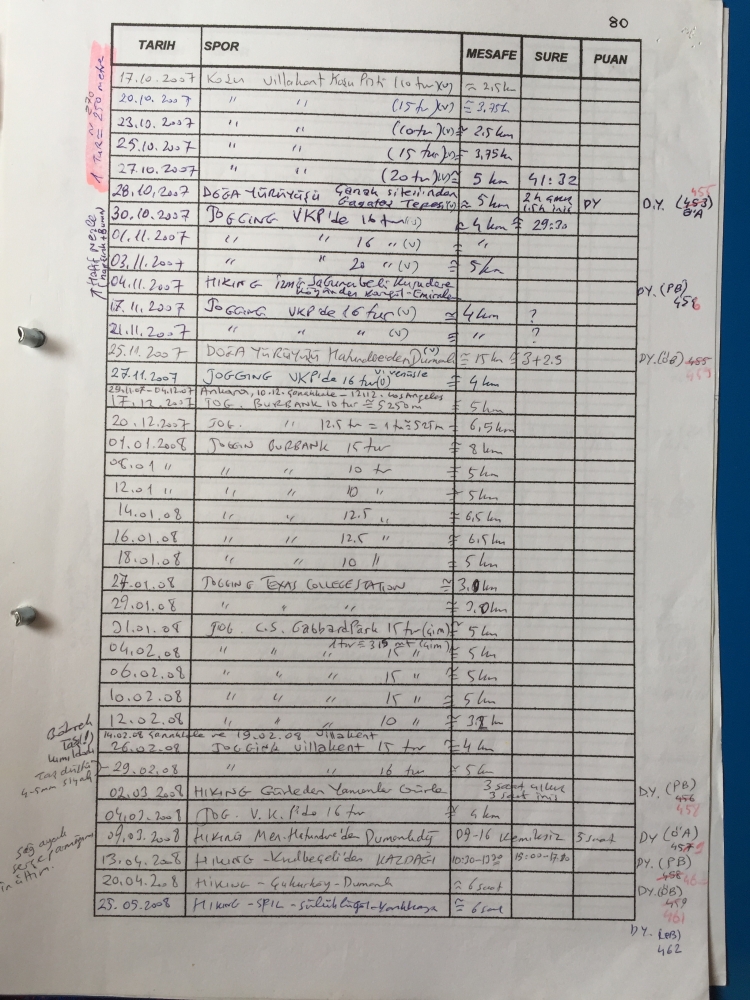 80
TARIH SPOR MESAFE SURE PUAN
17.10.2007 Koşu Villakent Koşu Pisti (10 tur)(v) ≅ 2,5 km
20.10.2007 " " (15 tr)(v) ≅ 3,75 k
23.10.2007 " " (10 tur)(v) ≅ 2.5 km
25.10.2007 " " (15 tur)(v) ≅ 3,75 km
27.10.2007 " " (20 tur)(v) ≅ 5 km 41:32
28.10.2007 DOĞA YÜRÜYÜŞÜ Çanak sitelerinden Tepesi(v) ≅ 5 km DY D.Y. (453) 455 Ö'A
30.10.2007 JOGGING VKP'de 16 tur(v) ≅ 4 km ≅ 29:30
01.11.2007 " " 16 "(v) ≅ "
03.11.2007 " " 20 "(v) ≅ 5 km
04.11.2007 HIKING İzmir DY. (PB) 456
17.11.2007 JOGGING VKP'de 16 tur(v) ≅ 4 km ?
21.11.2007 " " " (v) ≅ " ?
25.11.2007 DOĞA YÜRÜYÜŞÜ (v) ≅ 15 km ≅ 3+2.5 DY.(ÖB) 455
27.11.2007 JOGGING VKP'de 16 tur(v) ≅ 4 km
29.11.07 - 04.12.07 Ankara, 10.12. Çanakkale - 12.12. Los Angeles
17.12.2007 JOG. BURBANK 10 tur ≅ 5250m ≅ 5 km
20.12.2007 JOG. " 12.5 tr = 1 tr≅525m ≅ 6,5 km
01.01.2008 JOGGIN BURBANK 15 tur ≅ 8 km
05.01 " " " 10 tr ≅ 5 km
12.01 " " " 10 " ≅ 5 km
14.01.08 " " 12.5 " ≅ 6,5 km
16.01.08 " " 12.5 " ≅ 6,5 km
18.01.08 " " 10 " ≅ 5 km
27.01.08 JOGGING TEXAS COLLEGESTATION ≅ 3.0 km
29.01.08 " " " ≅ 3.0 km
31.01.08 JOG. C.S. Gabbard Park 15 tur (çim) ≅ 5 km
1 tur = 315 mt (çim)
04.02.08 " " " 15 " ≅ 5 km
06.02.08 " " " 15 " ≅ 5 km
10.02.08 " " " 15 " ≅ 5 km
12.02.08 " " " 10 " ≅ km
14.02.08 Çanakkale ve 19.02.08 Villakent
26.02.08 JOGGING Villakent 15 tur ≅ 4 km
29.02.08 " " 16 tur ≅ 5 km
02.03.2008 HIKING Gürleden Yamanlar Gürle 3 saat çıkış 3 saat iniş D.Y. (PB) 456 458
04.03.2008 JOG. V.K.P'de 16 tur ≅ 4 km
09.03.2008 HIKING Dumanlıdağ 09-16 Kemiksiz 5 saat DY (Ö'A) 457
13.04.2008 HIKING - Kızılkeçili'den KAZDAĞI 10:30-13:30 15:00-17:30 DY. (PB) 458
20.04.2008 HIKING - Çukurköy - Dumanlı ≅ 6 saat DY.(ÖB) 459 461
25.05.2008 HIKING - SPİL - Sülüklügöl - ≅ 6 saat
DY. (PB) 462
1 Tur = 250 metre
≅ 270
Böbrek
Taşı(!)
Taş düştü
4-5mm siyah
Sağ ayak
serçe parmağımı
incittim.